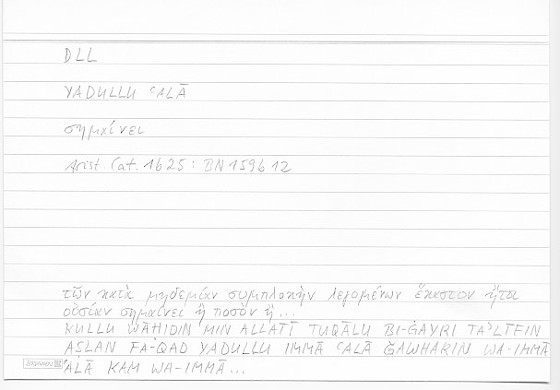 DLL
YADULLU ʿALĀ
σημαίνει
Arist. Cat. 1b25 : BN 159b12
τῶν κατὰ μηδεμίαν συμπλοκὴν λεγομένων ἕκαστον ἤτοι
οὐσίαν σημαίνει ἢ ποσὸν ἢ...
KULLU WĀḤIDIN MIN ALLATĪ TUQĀLU BI-ĠAYRI TAʾLĪFIN
AṢLAN FA-QAD YADULLU IMMĀ ʿALĀ ǦAWHARIN WA-IMMĀ
ʿALĀ KAM WA-IMMĀ...